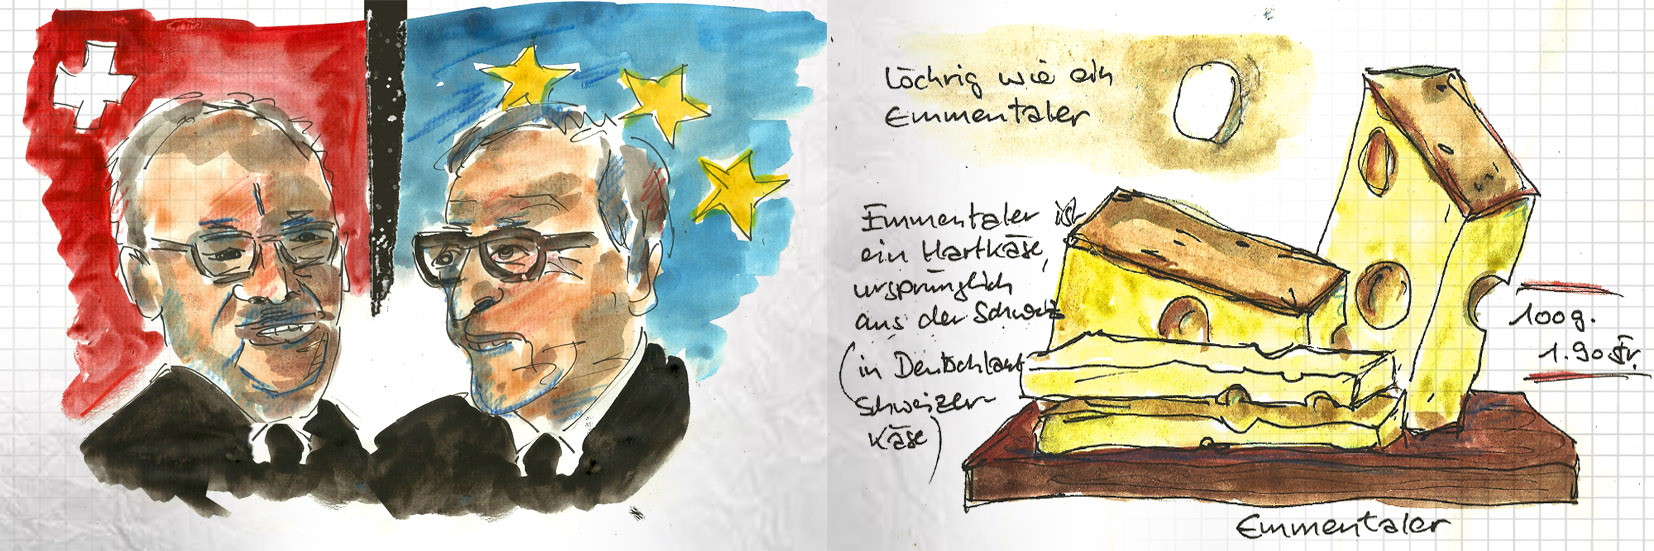 Löchrig wie ein
Emmentaler
Emmentaler ist
ein Hartkäse,
ursprünglich
aus der Schweiz
(in Deutschland
Schweizer
Käse)
100g.
1.90 Fr.
Emmentaler